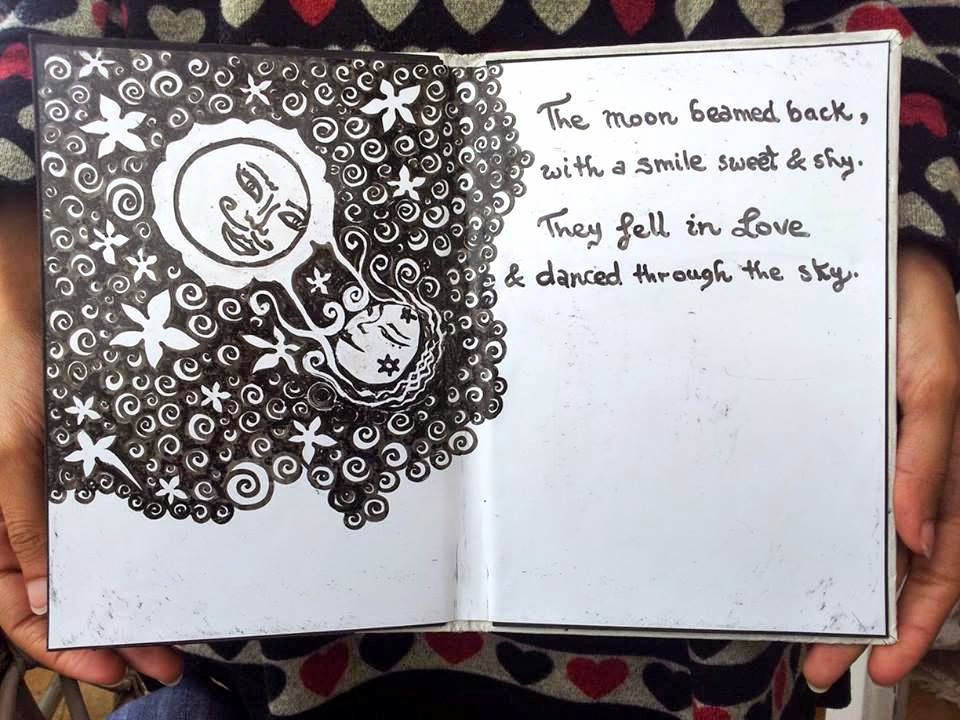 The moon beamed back,
with a smile sweet & shy.
They fell in Love
& danced through the sky.